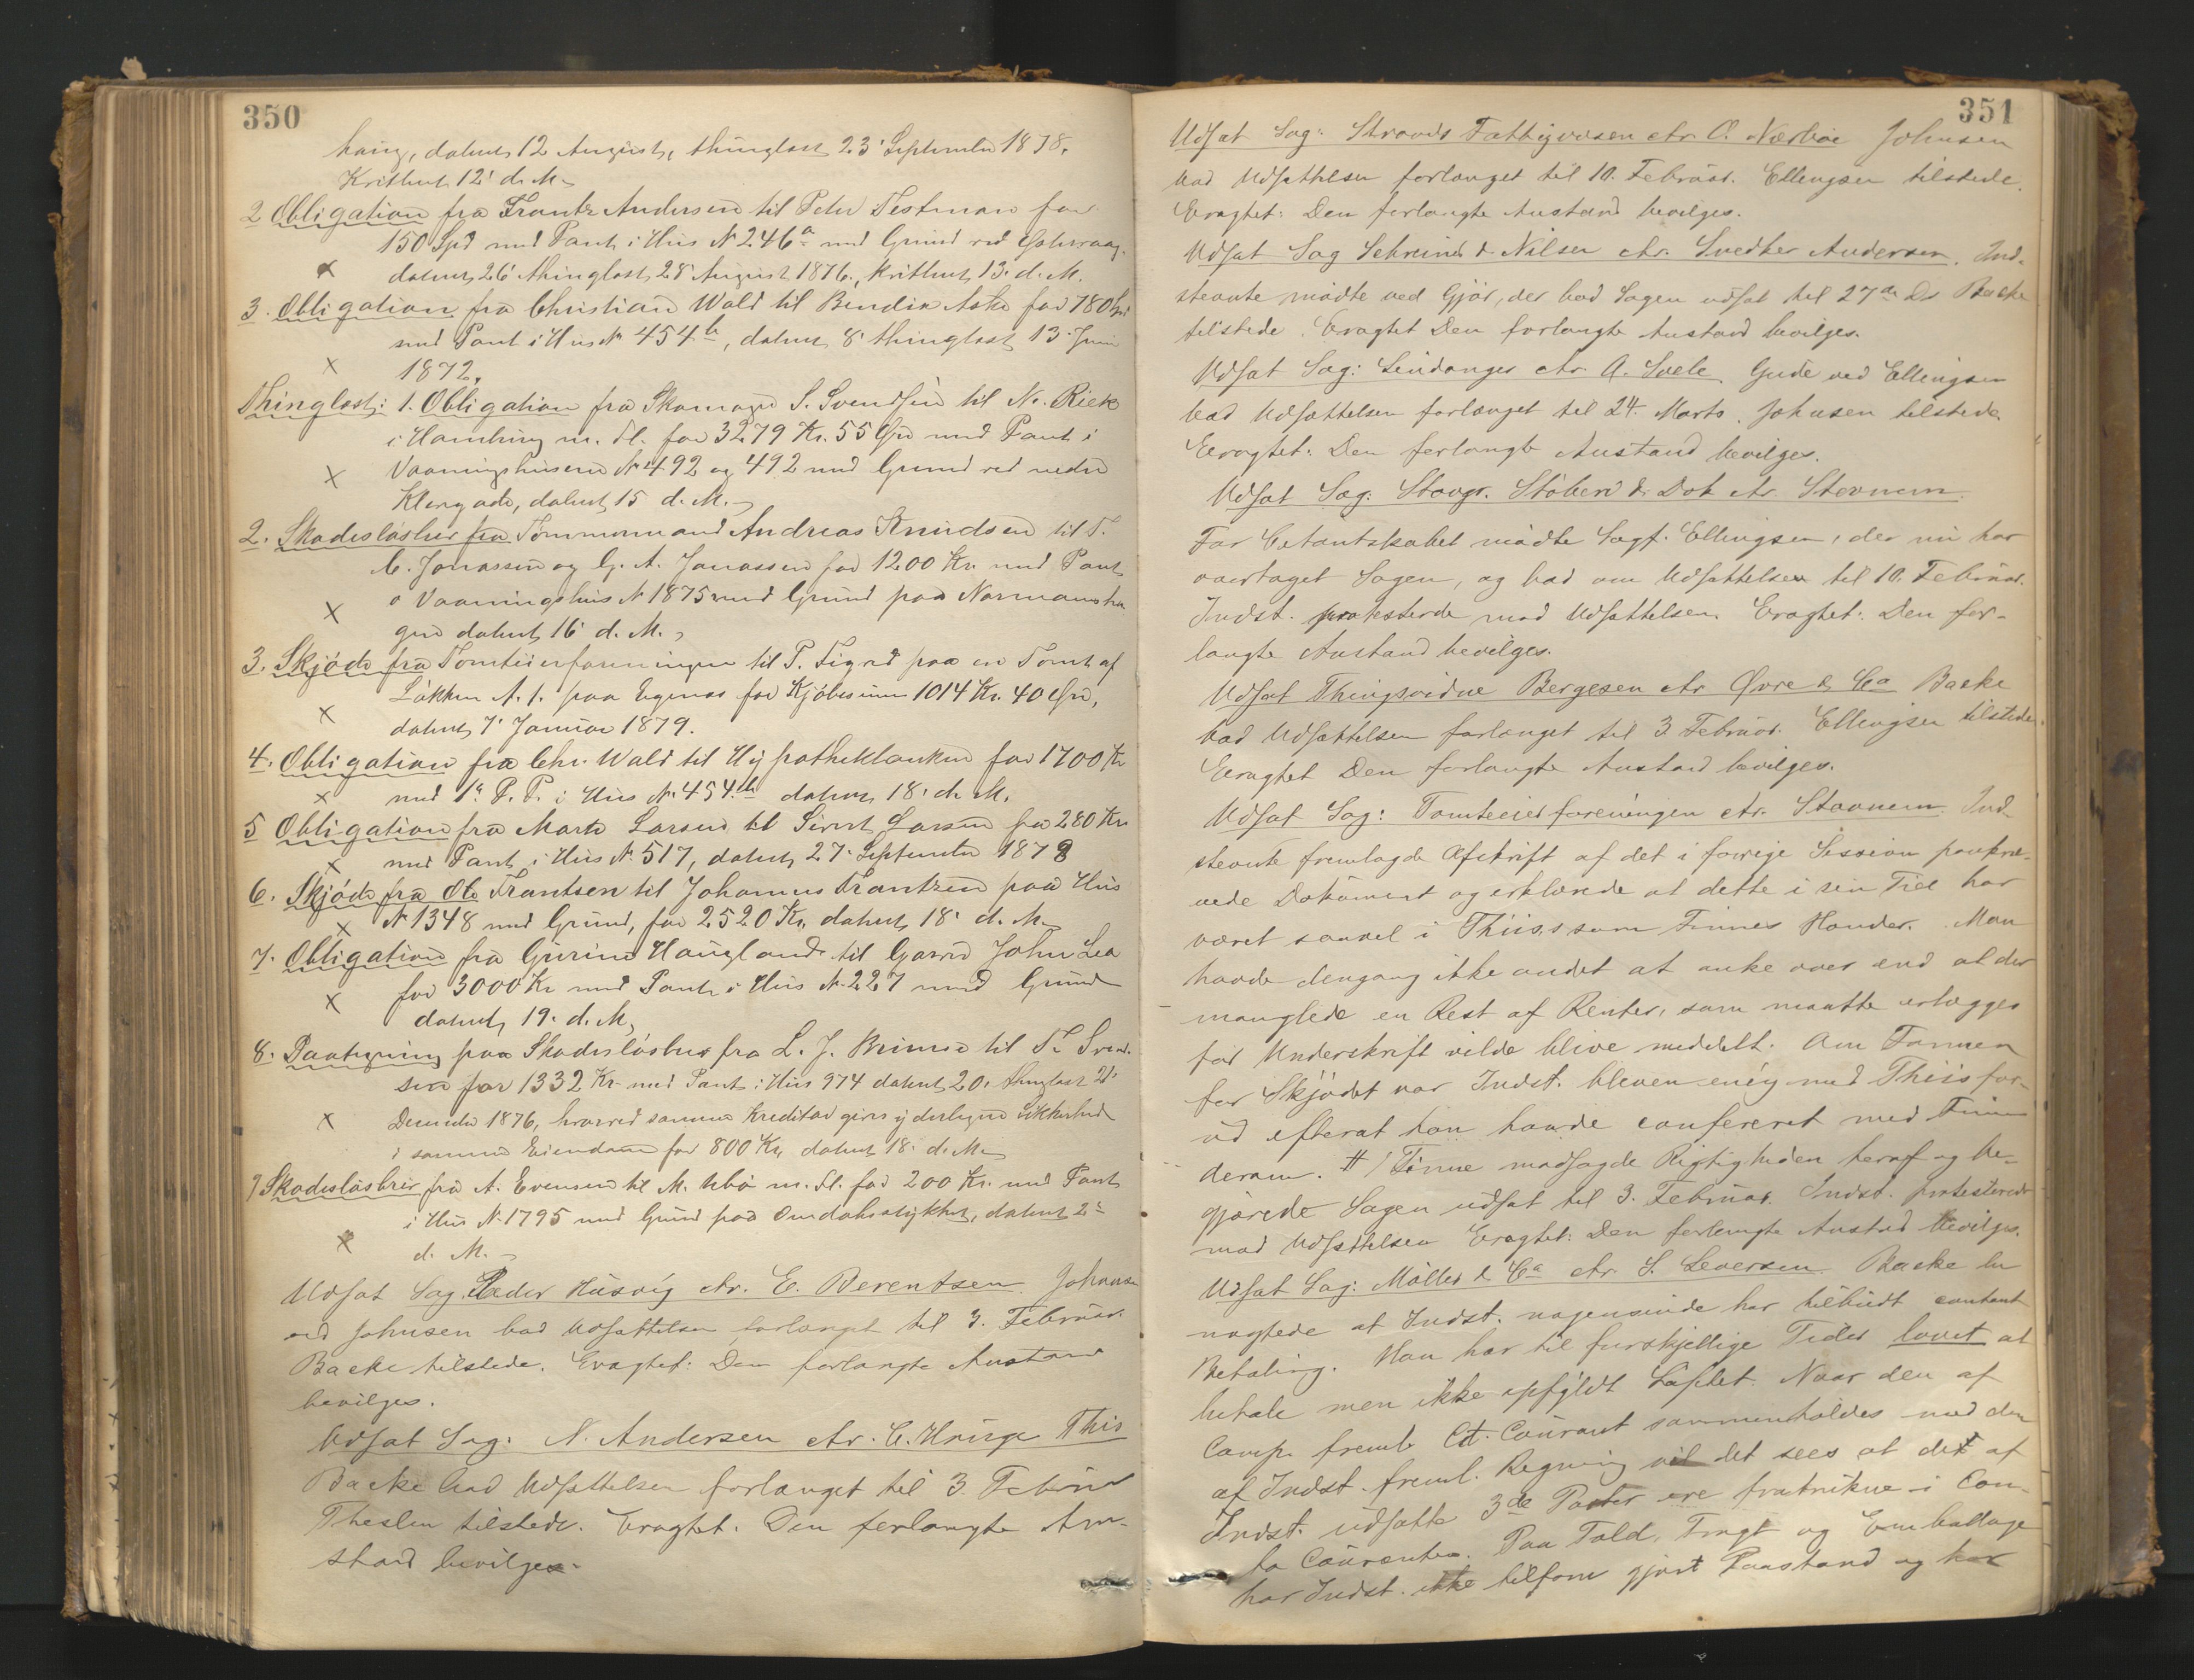 350
haug, datert 12 August, thinglæst 23' September 1878,
Kvitteret 12' d. M.
2 Obligation fra Frantz Andersen til Peder Testman for
150 Spd med Pant i Huus N 246a med Grund ved
dateret 26' thinglæst 28 August 1876, kvitteret 13. d. M.
3. Obligation fra Christian Wald til Bendix Aske for 780
med Pant i Hus No 454 b, dateret 8' thinglæst 13. Juni
1872.
Thinglæst: 1. Obligation fra Skomager S. Svendsen til N. Rieck
i Hamburg m. fl. for 3279 Kr. 55 Øre med Pant i
Vaaningshusene N 492 og 492 med Grund ved nedre
Klevgade, dateret 15 d. M.
2. Skadesløsbrev fra Tømmermand Andreas Knudsen til T.
C. Jonassen og G. A. Jonassen for 1200 Kr. med Pant
i Vaaningshus N 1875 med Grund paa Normansha
gen dateret 16' d. M.
3. Skjøde fra Tomteierforeningen til P. Tigred paa en Tomt af
Løkken N. 1. paa Egenæs for Kjøbesum 1014 Kr. 40 Øre,
dateret 7' Januar 1879.
4. Obligation fra Chr. Wald til Hypothekbanken for 1700 Kr
med 1' P. P. i Hus N. 454. b dateret 18. d. M.
5 Obligation fra Marte Larsen til Sivert Larsen for 280 Kr
med Pant i Hus N. 517, dateret 27. September 1878
6. Skjøde fra Ole Frantsen til Johannes Frantzen paa Hus
N 1348 med Grund, for 2520 Kr, dateret 18' d. M.
7. Obligation fra Gurine Haugland til Gaard John Lea
for 3000 Kr med Pant i Hus N. 227 med Grund
dateret 19. d. M.
8. Paategning paa Skadesløsbrev fra L. J. Brimse til T. Svend-
sen for 1332 Kr med Pant i Hus 974 dateret 20. thinglæst 21'
December 1876, hvorved samme Kreditor gives yderligere Sikkerhed
i samme Eiendom for 800 Kr, dateret 18. d. M.
9 Skadesløsbrev fra A. Evensen til M. Ubø m. fl. for 200 Kr. med Pant
i Hus N. 1795 med Grund paa Omdalsstykket, dateret 2'
d. M.
Udsat Sag. Peder Husvig ctr. E. Berentsen. Johnsen
ved Johnsen bad Udsættelsen forlænget til 3. Februar.
Backe tilstede. Eragtet: Den forlangte Anstand
bevilges.
Udsat Sag: N. Andersen ctr. C. Hauge This
Backe bad Udsættelsen forlænget til 3. Februar
Theslen tilstede. Eragtet: Den forlangte An-
stand bevilges.
351
Udsat Sag: Strands Fattigvæsen ctr. O. Nærbøe Johnsen
bad Udsættelsen forlænget til 10. Februar. Ellingsen tilstede.
Eragtet: Den forlangte Anstand bevilges.
Udsat Sag Schreiner & Nilsen ctr. Snedker Andersen. Ind-
stevnte mødte ved Gjør, der bad Sagen udsat til 27de Ds Backe
tilstede. Eragtet Den forlangte Anstand bevilges.
Udsat Sag: Lindanger ctr. A. Svele. Gude ved Ellingsen
bad Udsættelsen forlænget til 24. Marts. Johnsen tilstede.
Eragtet: Den forlangte Anstand bevilges.
Udsat Sag: Stavgr. Støberi & Dok ctr. Stevnem.
For Citantskabet mødte Sagf. Ellingsen, der nu har
overtaget Sagen, og bad om Udsættelsen til 10. Februar.
Indst. protesterede mod Udsættelsen. Eragtet: Den for-
langte Anstand bevilges.
Udsat Thingsvidne Bergesen ctr Øvre & Co Backe
bad Udsættelsen forlænget til 3 Februar. Ellingsen tilstede.
Eragtet Den forlangte Anstand bevilges.
Udsat Sag: Tomteeierforeningen ctr. Stavnem. Ind-
stevnte fremlagde Afskrift af det i forrige Session paakræ-
vede Dokument og erklærede at dette i sin Tid har
været saavel i Thiis's som Finnes Hænder. Man
havde dengang ikke andet at anke over end at der
manglede en Rest af Renter, som maatte erlægges
før Underskrift vilde blive meddelt. Om Formen
for Skjødet var Indst. bleven enig med Thiis for-
ud efterat han havde confereret med Finne
derom. # / Finne modsagde Rigtigheden heraf og be-
gjærede Sagen udsat til 3. Februar. Indst. protesterede
mod Udsættelsen Eragtet: Den forlangte Anstand bevilges.
Udsat Sag: Møller & Co ctr. S. Seversen. Backe be
nægtede at Indst. nogensinde har tilbudt contant
Betaling. Han har til forskjellige Tider lovet at
betale men ikke opfyldt Løftet. Naar den af
Comp. freml. Ct. Courant sammenholdes med den
af Indst. freml. Regning vil det sees at det af
Indst. udsatte 3de Poster ere fratrukne i Con-
to Couranten. Paa Told, Fragt og Emballage
har Indst. ikke tilforn gjort Paastand og har